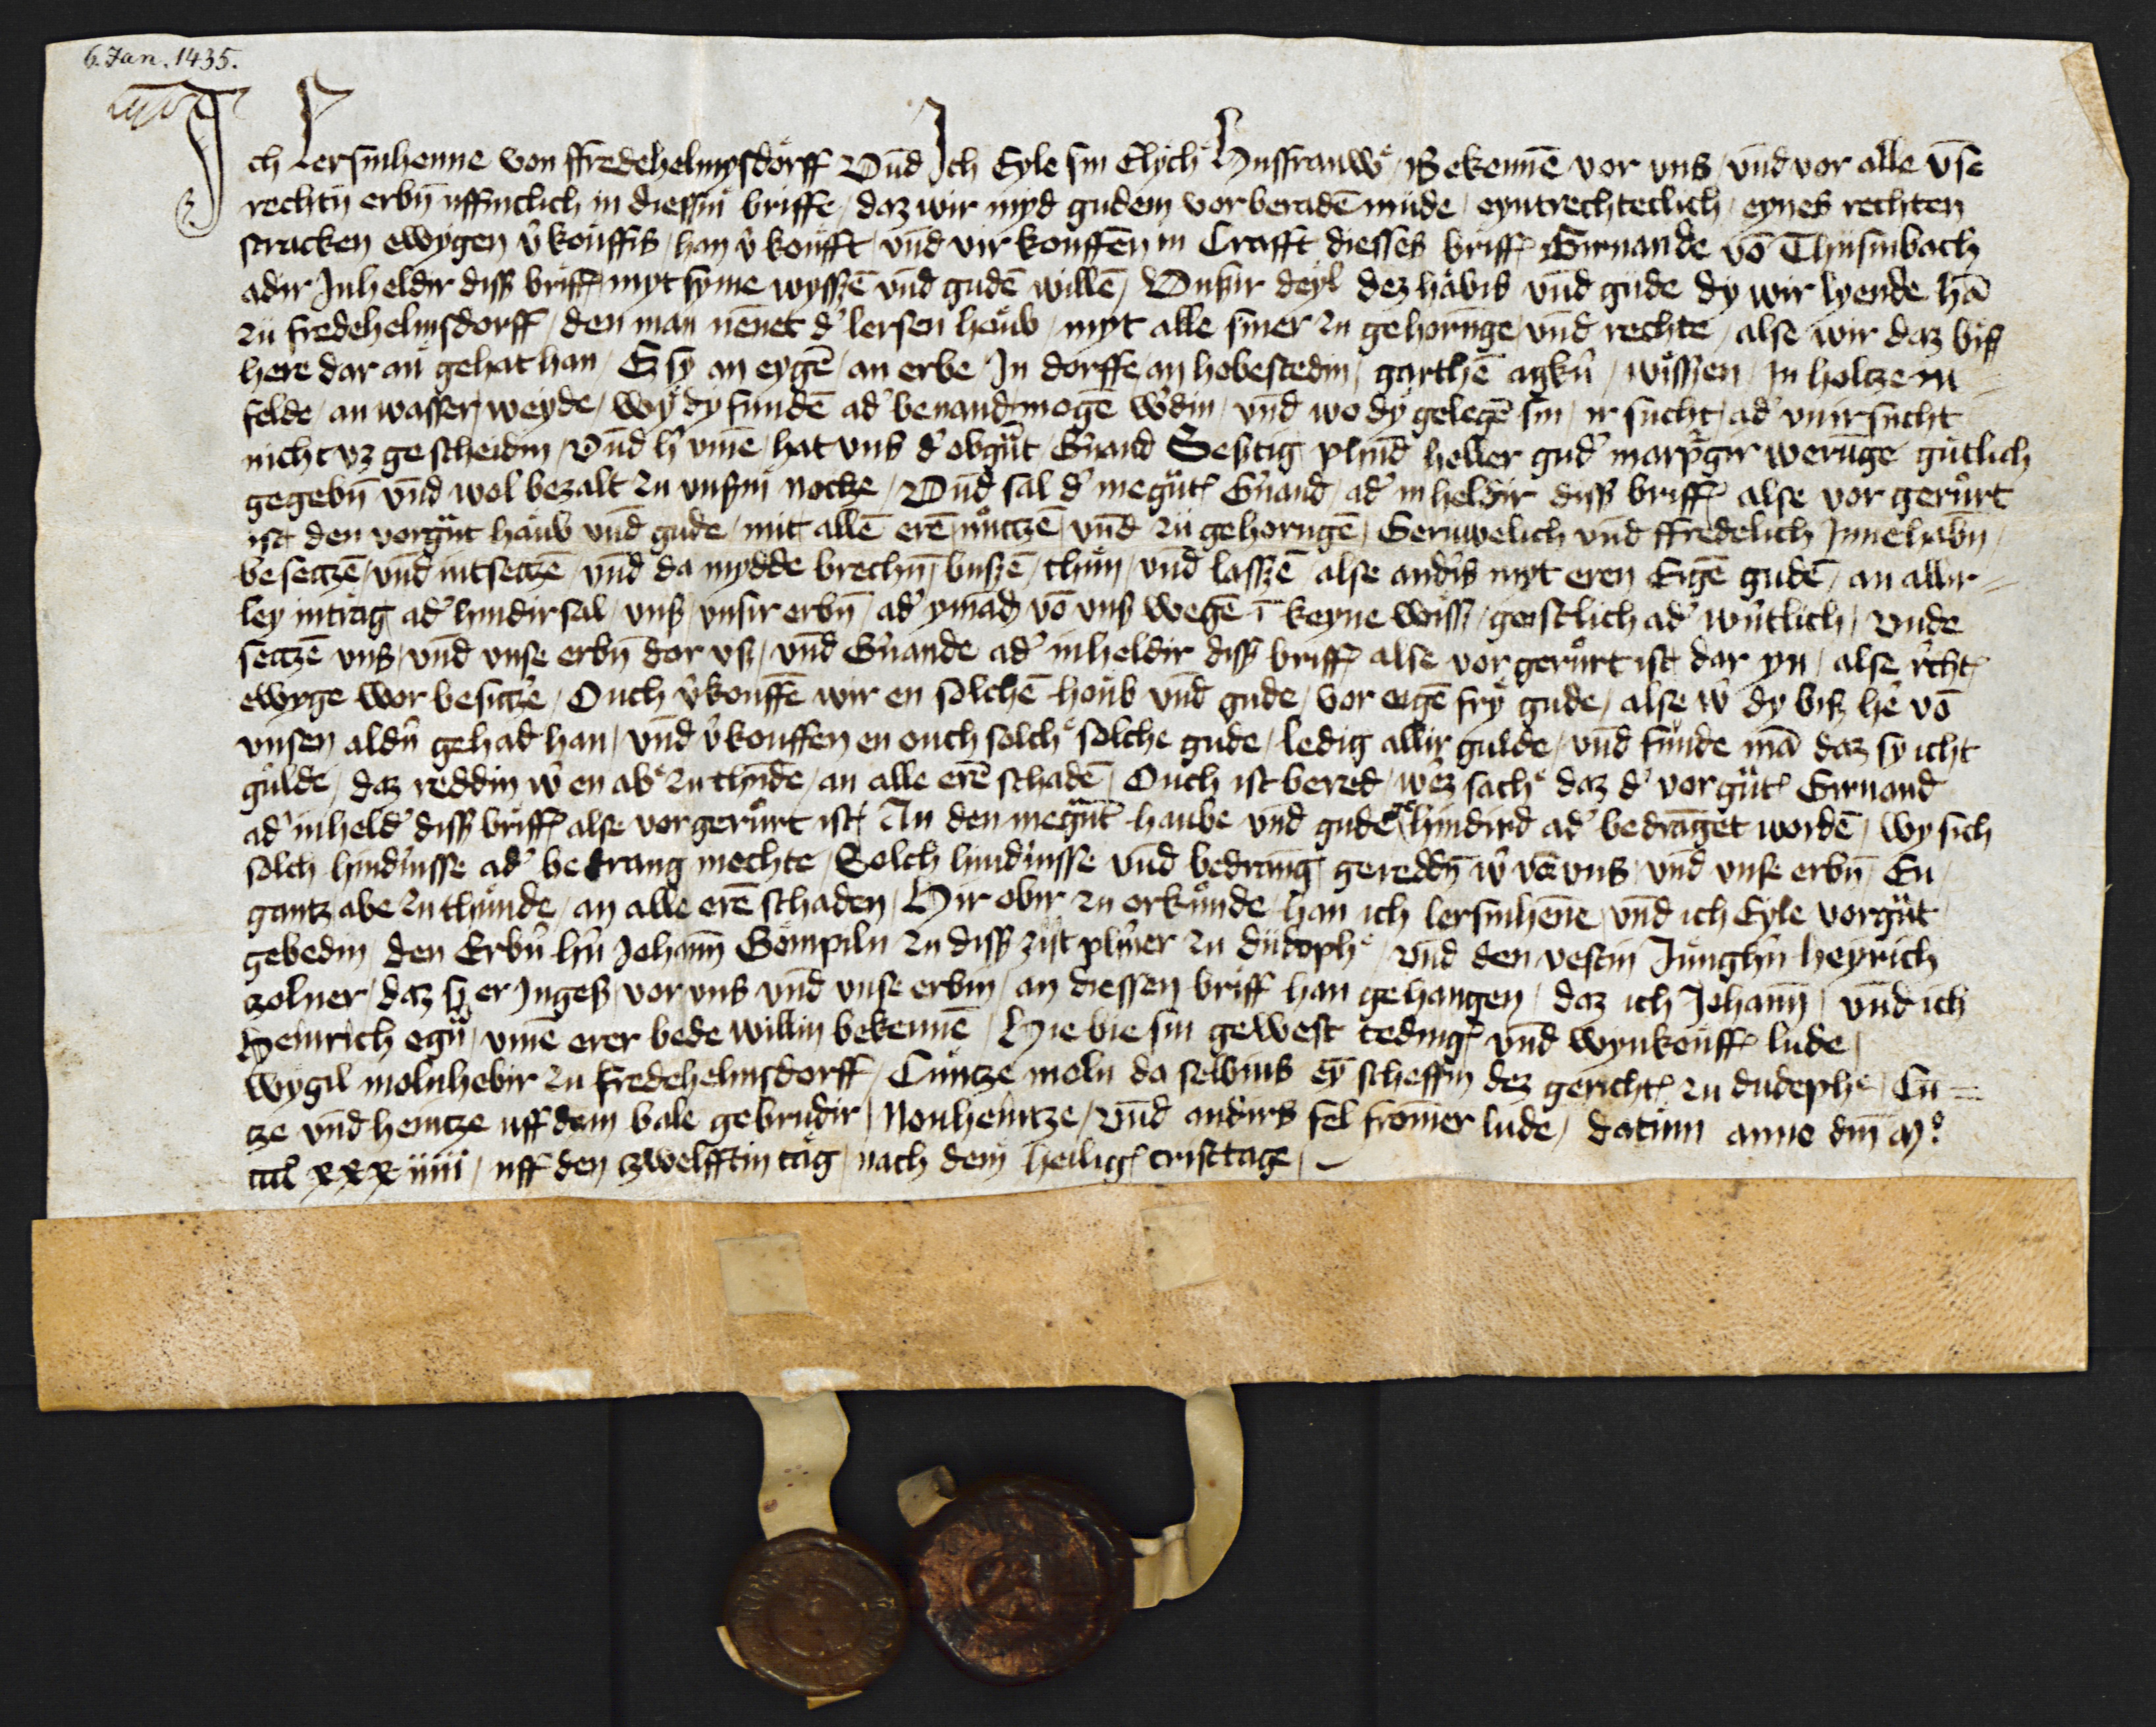 6. Jan. 1435.
Ich Lersinhenne von ffredehelmyßdorff Vnd Ich Eyle sin Elych Husfrauwe, Bekennē vor vns, vnd vor alle vnse
rechtin erbin uffintlich in diessin briffe, daz wir myd gudem vorberadē müde, eyntrechteclich, eynes rechten
stracken ewygen v̾kouffis, han v̾koufft, vnd vir kouffen in Crafft diesses briffs Girnande vō
adir Inheldir diß briffs myt syme wyssē vnd gudē willē, Vnsir deyl dez houbis vnd gude dy wir lyende hā
zü fredehelmsdorff, den man nēnet d̾ lersen houb, myt alle siner zu gehornge, vnd rechte, alse wir daz biß
here dar an gehat han, Eß sy an eygē, an erbe, In dorffe an hobestedin, garthē agkirn, wissen, in holtze in
felde, an wasser, weyde, wy dy fundē ad̾ benand mogē w̾din, vnd wo dy gelegē sin, ir sucht, ad̾ vnirsucht
nicht vz gescheidin, Vnd h̾ vmē, hat vns d̾ obgnt G̾nand Sestig phund heller gud̾ marpgir werunge gutlich
gegebin vnd wol bezalt zu vnsin notcze, Vnd sal d̾ megnt G̾nand, ad̾ inheldir diß briffs alse vor gerurt
ist den vorgnt houb vnd gude, mit allē erē nutczē, vnd zü gehorngē, Geruwelich vnd ffredelich Innehabin,
besetczē, vnd intsetczē, vnd da mydde brechin, bußē, thün, vnd lasszē, alse andirs myt eren Eigē gudē, an allir=
ley intrag ad̾ hindirsal, vns, vnsir erbin, ad̾ ymād vō vns wegē ī keyne wiß, geistlich ad̾ wirtlich, Vnde
setczē vns, vnd vnse erbin dor vß, vnd G̾nande ad̾ inheldir diß briffs alse vor gerurt ist dar yn, alse rechts
ewyge wor besitcze, Ouch v̾kouffē wir en solchē houb vnd gude, vor eigē fry gude, alse w̾ dy biß her vō
vnsen aldirn gehad han, vnd v̾kouffen en ouch solche solche gude, ledig allir gulde, vnd funde mā daz sy icht
gulde, daz reddin w̾ en abe zu thunde, an alle erē schadē, Ouch ist bered, werz sache daz d̾ vorgnt Girnand
ad̾ inheld̾ diß briffs alse vor gerurt ist, An den megnt hoube vnd gude hindird ad̾ bedranget wordē, wy sich
solch hind̾nisse ad̾ bedrang mochte, Solch hind̾nisse vnd bedrang gereddin w̾ vor vns, vnd vnse erbin, En
gantz abe zu thunde, an alle erē schaden, Hir obir zu orkunde han ich lersinhenne, vnd ich Eyle vorgnt
gebedin den Erbirn hern Johann Gompiln zu diß zijt pherner zu düdophe, vnd den vestin Junghern heynrich
zolner, daz sy er Ingeß vor vns vnd vnse erbin, an diessen briff han gehangen, daz ich Johann, vnd ich
Heinrich egnt, vmē erer bede willin bekennē, Hie bie sin gewest tedings vnd wynkouffs lude,
wygil molnhebir zu fredehelmsdorff, Cuntze moln da selbins eȳ scheffin dez gerichts zu düdephe, Cū=
tze vnd heintze uff dem bale gebrudir, Nouheintze, vnd andirs fel fromer lude, datum anno dm̄ Mº
cccc xxx iiiii, uff den zwelfftin tag, nach dem heiligs cristtage,